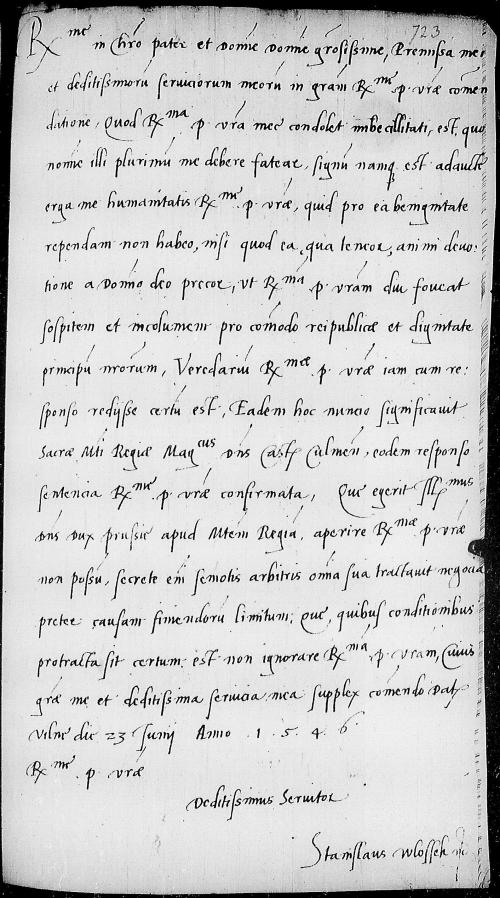 723
Rx^me in chro pater et Domine Domine grosissime, Premissa mei
et deditissimorũ seruiciorum meorũ in gram Rx^me p. vrae comen
datione, Quod Rx^ma p. vra mee condolet imbecillitati, est quo
nomie illi plurimũ me debere fatear, signũ namq est adaucte
erga me humanitatis Rx^me p. vrae, quid pro ea benignitate
rependam non habeo, nisi quod ea, qua teneor, animi deuo:
tione a Domino deo precor, vt Rx^ma p. vram diu foueat
sospitem et incolumem pro comodo reipublicae et dignitate
principũ nrorum, Veredariũ Rx^mae p. vrae iam cum re:
sponso redijsse certũ est, Eadem hoc nuncio significauit
Sacrae Mti Regiae Mag^cus Dns Cast Culmeñ, eodem responso
sentencia Rx^mae p. vrae confirmata, Que egerit Ill^mus
Dns Dux prussie apud Mtem Regiã, aperire Rx^mae p. vrae
non possũ, secrete em semotis arbitris omia sua tractauit negocia
preter causam finiendorũ limitum, Que, quibus conditionibus
protracta sit certum est non ignorare Rx^ma p. vram, Cuius
grae me et deditissima seruicia mea supplex comendo Dat
Vilne die 23 Junij Anno .1.5.4.6.
Rx^me p. vrae
Deditissimus Seruitor
Stanislaus Wlossek